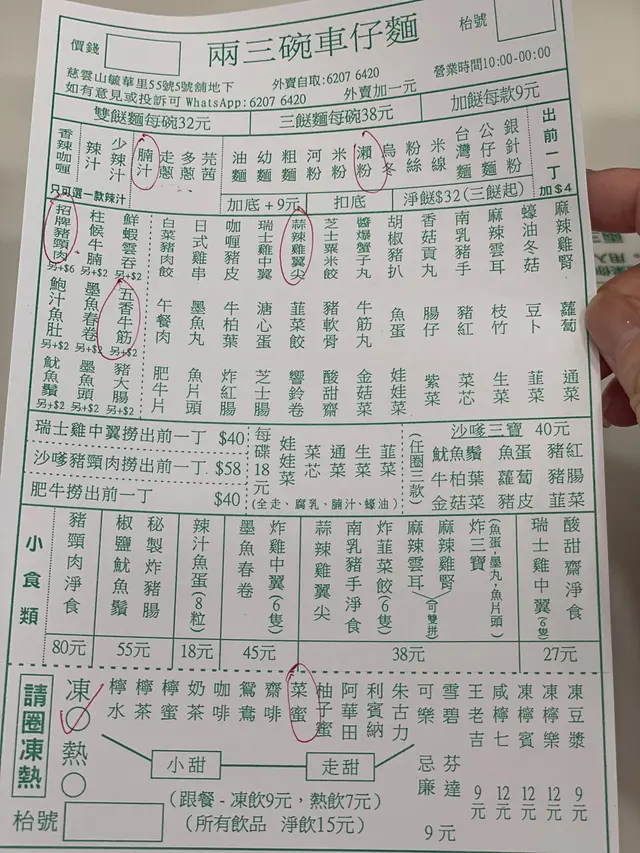 價錢
兩三碗車仔麵
枱號
慈雲山毓華里55號5號舖地下
外賣自取:6207 6420
營業時間10:00-00:00
如有意見或投訴可 WhatsApp:6207 6420
外賣加一元
雙餸麵每碗32元
三餸麵每碗38元
加餸每款9元
香辣咖喱
辣汁
少辣汁
腩汁
走蔥
多蔥
芫茜
油麵
幼麵
粗麵
河粉
米粉
瀨粉
烏冬
粉絲
米線
台灣麵
公仔麵
銀針粉
出前一丁
加$4
只可選一款辣汁
加底+9元
扣底
淨餸$32(三餸起)
招牌豬頸肉
另+$6
柱候牛腩
另+$2
鮮蝦雲吞
另+$2
白菜豬肉餃
日式雞串
咖喱豬皮
瑞士雞中翼
蒜辣雞翼尖
芝士粟米餃
醬爆蟹子丸
胡椒豬扒
香菇貢丸
南乳豬手
麻辣雲耳
蠔油冬菇
麻辣雞腎
鮑汁魚肚
另+$2
墨魚春卷
另+$2
五香牛筋
另+$2
午餐肉
墨魚丸
牛柏葉
溏心蛋
韮菜餃
豬軟骨
牛筋丸
魚蛋
腸仔
豬紅
枝竹
豆卜
蘿蔔
魷魚鬚
另+$2
墨魚頭
另+$2
豬大腸
另+$2
肥牛片
魚片頭
炸紅腸
芝士腸
響鈴卷
酸甜齋
金菇菜
娃娃菜
紫菜
菜芯
生菜
韮菜
通菜
瑞士雞中翼撈出前一丁 $40
沙嗲豬頸肉撈出前一丁 $58
肥牛撈出前一丁 $40
每碟18元
娃娃菜
菜芯
通菜
生菜
韮菜
(全走、腐乳、腩汁、蠔油)
(任圈三款)
沙嗲三寶 40元
魷魚鬚 魚蛋 豬紅
牛柏葉 蘿蔔 豬腸
金菇菜 豬皮 韮菜
小食類
豬頸肉淨食
80元
椒鹽魷魚鬚
秘製炸豬腸
55元
辣汁魚蛋(8粒)
18元
墨魚春卷
炸雞中翼(6隻)
45元
蒜辣雞翼尖
南乳豬手淨食
炸韮菜餃(6隻)
麻辣雲耳
麻辣雞腎
(可雙拼)
炸三寶
(魚蛋,墨丸,魚片頭)
38元
瑞士雞中翼(6隻)
酸甜齋淨食
27元
請圈凍熱
凍
熱
檸水
檸茶
檸蜜
奶茶
咖啡
鴛鴦
齋啡
菜蜜
柚子蜜
阿華田
利賓納
朱古力
可樂
雪碧
王老吉
9元
咸檸七
12元
凍檸賓
12元
凍檸樂
12元
凍豆漿
9元
忌廉
芬達
9元
小甜
走甜
(跟餐 - 凍飲9元，熱飲7元)
(所有飲品 淨飲15元)
枱號